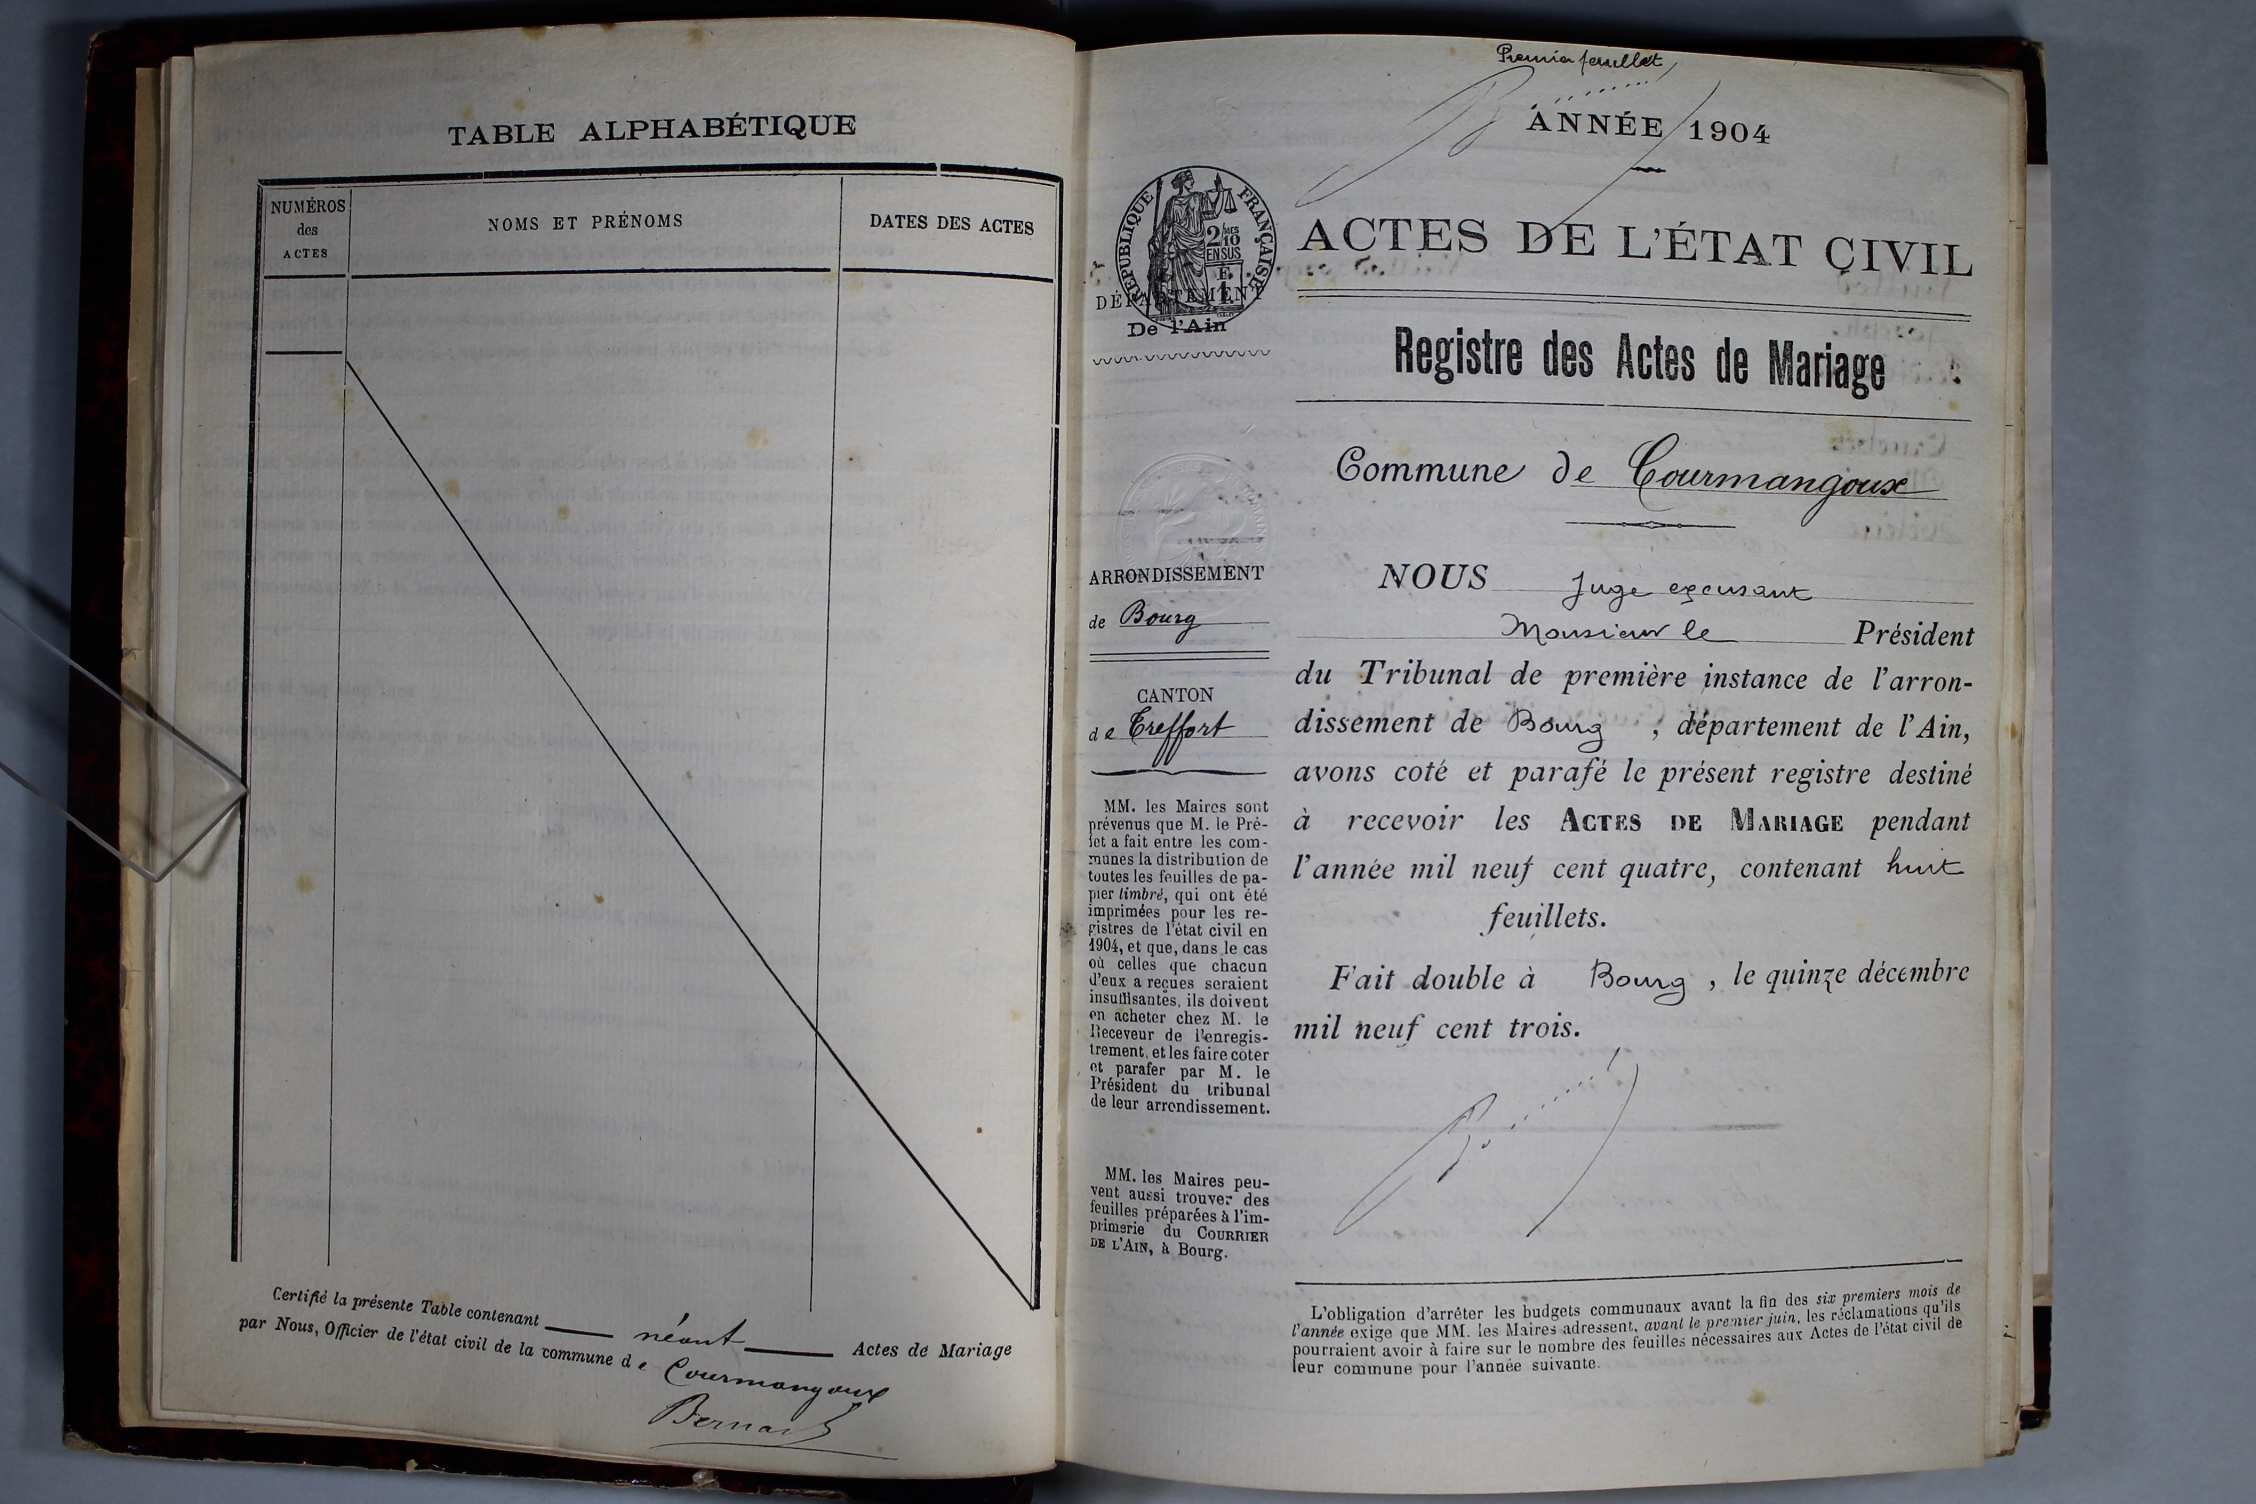 TABLE ALPHABÉTIQUE
NUMÉROS
des
ACTES
NOMS ET PRÉNOMS
DATES DES ACTES
Certifié la présente Table contenant néant Actes de Mariage
par Nous, Officier de l'état civil de la commune de Courmangoux
Premier feuillet
ANNÉE 1904
RÉPUBLIQUE FRANÇAISE
2/10
EN SUS
DÉPARTEMENT
De l'Ain
ACTES DE L'ÉTAT CIVIL
Registre des Actes de Mariage
Commune de Courmangoux
ARRONDISSEMENT
de Bourg
CANTON
de Treffort
MM. les Maires sont
prévenus que M. le Pré-
fet a fait entre les com-
munes la distribution de
toutes les feuilles de pa-
pier timbré, qui ont été
imprimées pour les re-
gistres de l'état civil en
1904, et que, dans le cas
où celles que chacun
d'eux a reçues seraient
insuffisantes, ils doivent
en acheter chez M. le
Receveur de l'enregis-
trement, et les faire coter
et parafer par M. le
Président du tribunal
de leur arrondissement.
MM. les Maires peu-
vent aussi trouver des
feuilles préparées à l'im-
primerie du COURRIER
DE L'AIN, à Bourg.
NOUS Juge excusant
Monsieur le Président
du Tribunal de première instance de l'arron-
dissement de Bourg , département de l'Ain,
avons coté et parafé le présent registre destiné
à recevoir les ACTES DE MARIAGE pendant
l'année mil neuf cent quatre, contenant huit
feuillets.
Fait double à Bourg , le quinze décembre
mil neuf cent trois.
L'obligation d'arrêter les budgets communaux avant la fin des six premiers mois de
l'année exige que MM. les Maires adressent, avant le premier juin, les réclamations qu'ils
pourraient avoir à faire sur le nombre des feuilles nécessaires aux Actes de l'état civil de
leur commune pour l'année suivante.